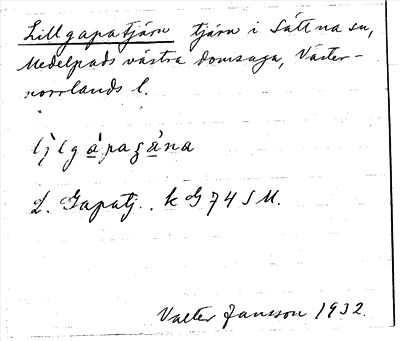 Lillgapatjärn tjärn i Sättna sn,
Medelpads västra domsaga, Väster-
norrlands l.
L. Gapatj. . k G 74 S M.
Valter Jansson 1932.